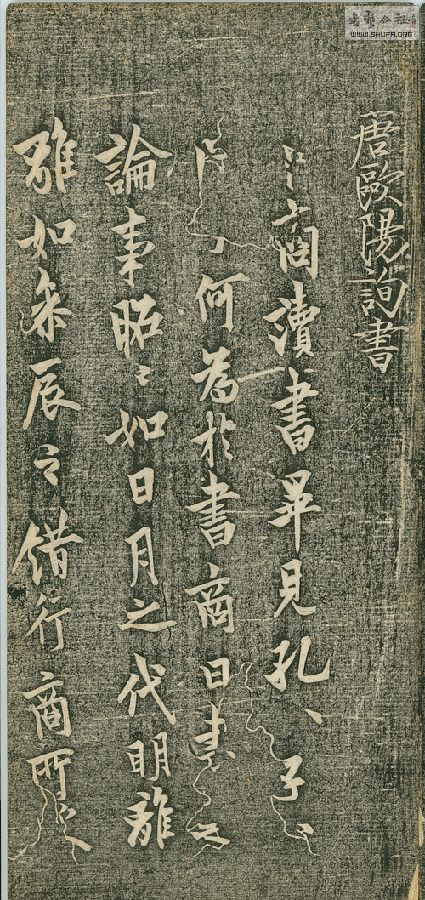 唐歐陽詢書
商讀書畢見孔〻子〻
何為於書商曰書之
論事昭〻如日月之代明離
離如參辰之錯行商所
WWW.SHUFA.ORG